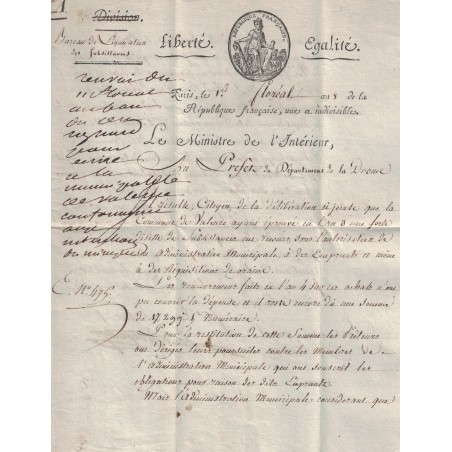 Division
Bureau de Liquidation
des Subsistances
Liberté.
Egalité.
REPUBLIQUE FRANÇAISE
Paris, le 1er floréal an 8 de la
République française, une et indivisible.
renvoi du
11 floréal
au
pour
ecrire
a la
municipalité
de valence
conformement
aux
du ministre
Le Ministre de l'Intérieur,
Au Préfet du Département de la Drome
Il résulte, Citoyen, de la délibération ci jointe que la
Commune de Valence ayant éprouvé en l'an 3 une forte
disette de Subsistances eut recours, sous l'autorisation de
l'Administration Municipale, à des Emprunts et même
à des Réquisitions de graine.
E. No 675.
Le recouvrement fait en l'an 4 sur ces achats n'a
pu couvrir la dépense et il reste encore dû une Somme
de 17,299 f Numéraire.
Pour la restitution de cette Somme les Prêteurs
ont dirigé leurs poursuites contre les Membres de
l'Administration Municipale qui ont souscrit les
obligations pour raison des dits Emprunts.
Mais l'Administration Municipale considérant que